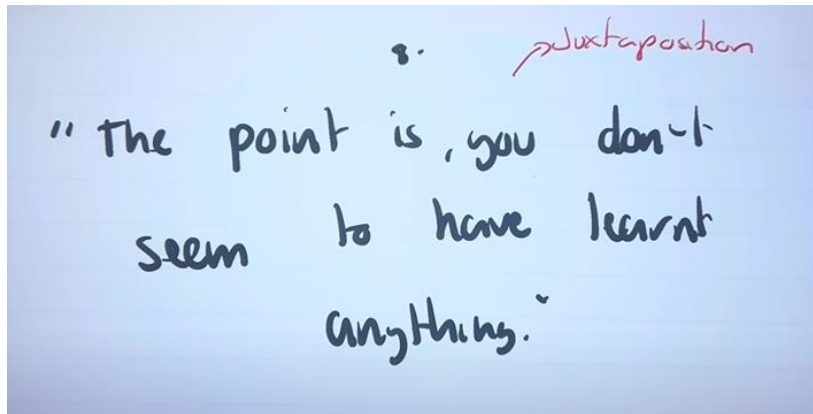 8.
→Juxtaposition
"The point is, you don't
seem to have learnt
anything."